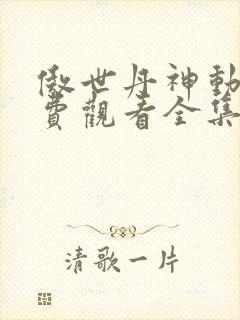 傲世丹神動
費觀看全集
清歌一片